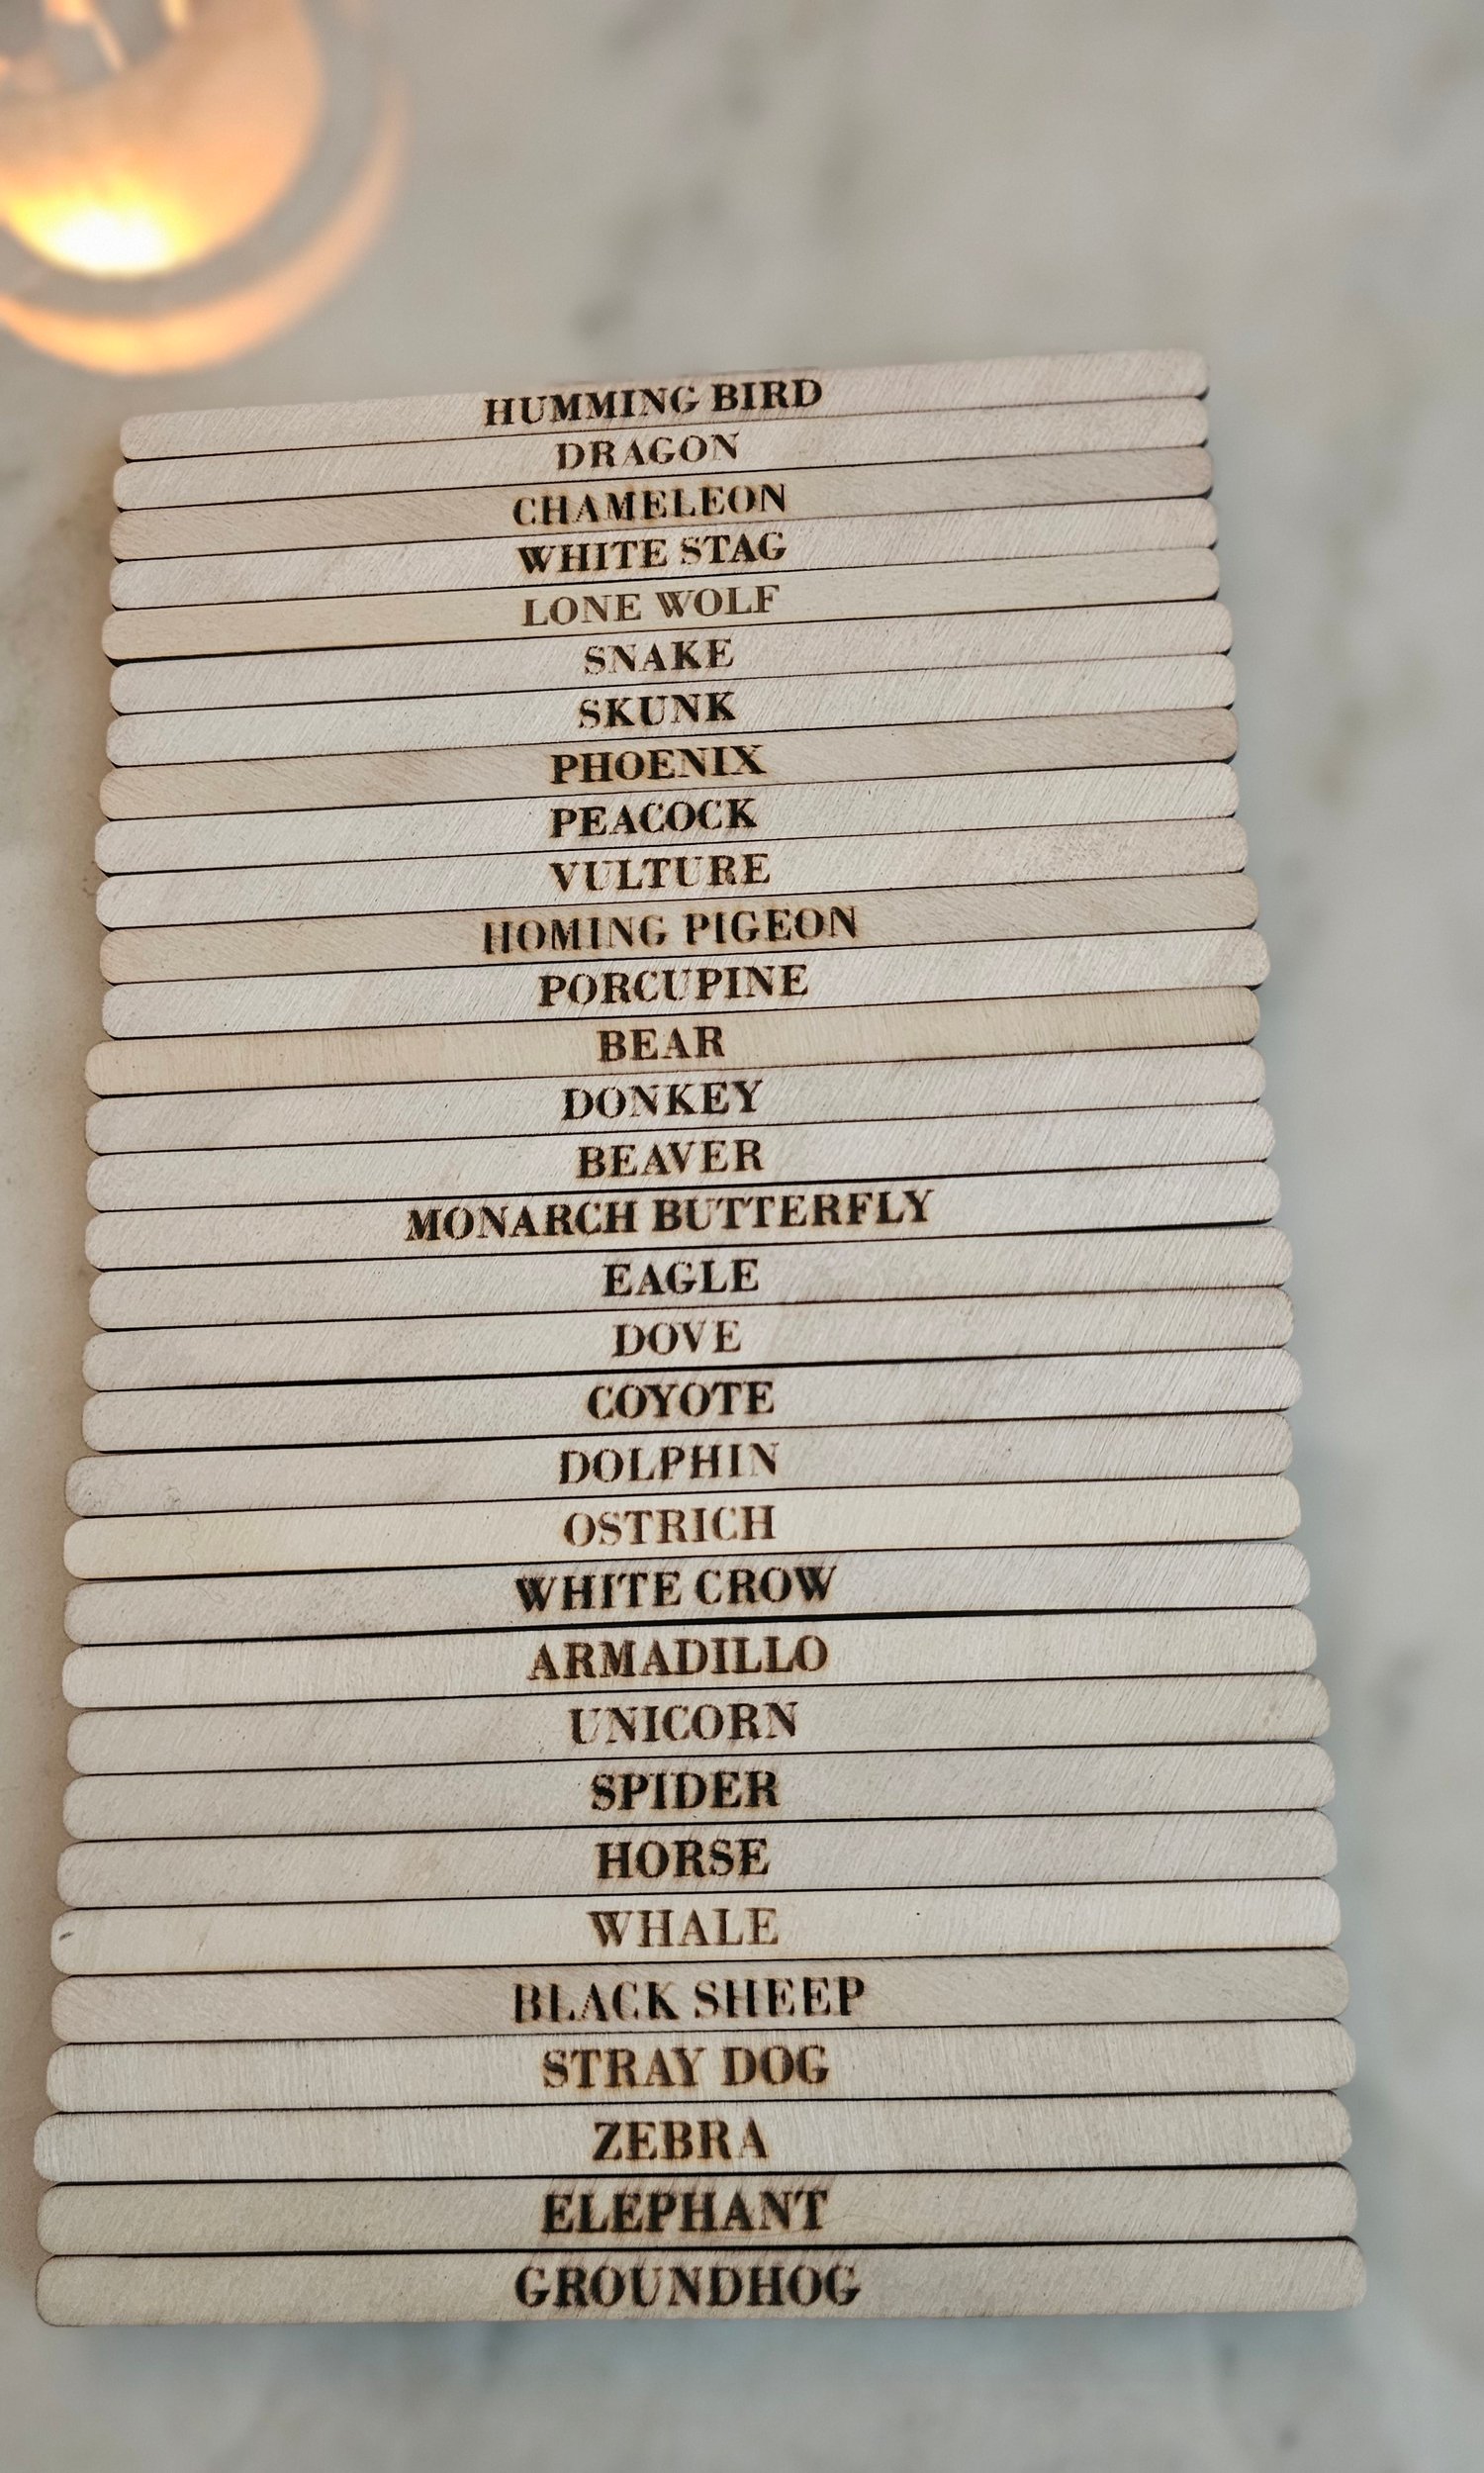 HUMMING BIRD
DRAGON
CHAMELEON
WHITE STAG
LONE WOLF
SNAKE
SKUNK
PHOENIX
PEACOCK
VULTURE
HOMING PIGEON
PORCUPINE
BEAR
DONKEY
BEAVER
MONARCH BUTTERFLY
EAGLE
DOVE
COYOTE
DOLPHIN
OSTRICH
WHITE CROW
ARMADILLO
UNICORN
SPIDER
HORSE
WHALE
BLACK SHEEP
STRAY DOG
ZEBRA
ELEPHANT
GROUNDHOG